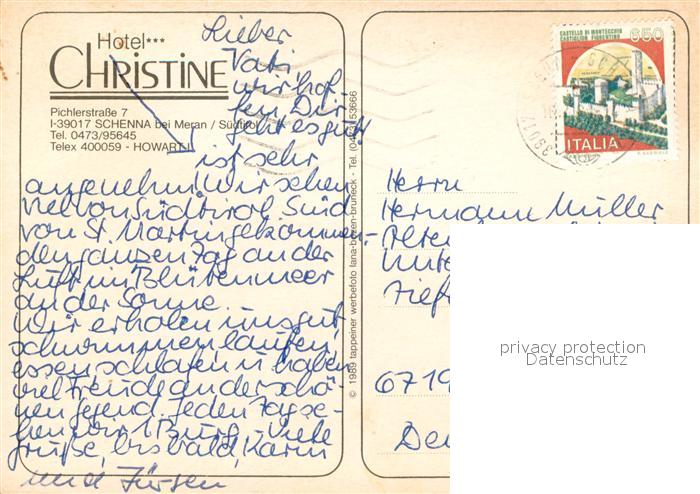 Hotel***
CHRISTINE
Pichlerstraße 7
I-39017 SCHENNA bei Meran / Südtirol
Tel. 0473/95645
Telex 400059 - HOWARTI
Lieber
Vati
wir hof-
fen Dir
geht es gut
ist sehr
angenehm. Wir sehen
viel von Südtirol. Sind
von St. Martin gekommen.
den ganzen Tag an der
Luft im Blütenmeer
an der Sonne.
Wir erholen uns gut
schwimmen, laufen,
essen, schlafen u. haben
viel Freude an der schö-
nen Gegend. Jeden Tag se-
hen wir 1 Burg. Viele
Grüße, bis bald, Karin
und Jürgen
© 1989 tappeiner werbefoto lana-bozen-bruneck - Tel.
CASTELLO DI MONTECCHIO
CASTIGLION FIORENTINO
650
ITALIA
39017
Herrn
Hermann Müller
privacy protection
Datenschutz
6719